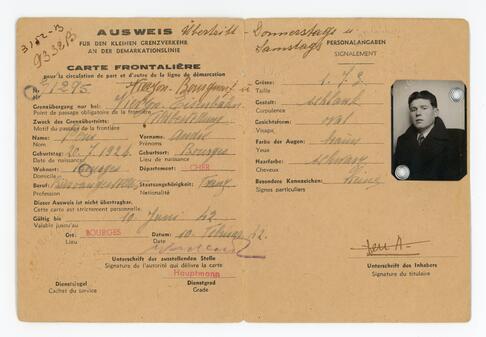 3152-B
9338B
AUSWEIS Übertritt - Donnerstags u.
FÜR DEN KLEINEN GRENZVERKEHR
AN DER DEMARKATIONSLINIE
Samstags
CARTE FRONTALIÈRE
pour la circulation de part et d'autre de la ligne de démarcation
Nr 1295 Vierzon-Bourgneuf u
Nº
Grenzübergang nur bei: Vierzon-Eisenbahn
Point de passage obligatoire de la frontière
Zweck des Grenzübertritts:
Motif du passage de la frontière
Name: Vorname: André
Nom Prénoms
Geburtstag: 20.7.1926 Geburtsort: Bourges
Date de naissance Lieu de naissance
Wohnort: Bourges Département: CHER
Domicile
Beruf: Büroangestellter Staatsangehörigkeit: Franz.
Profession Nationalité
Dieser Ausweis ist nicht übertragbar.
Cette carte est strictement personnelle.
Gültig bis 10 Juni 42
Valable jusqu'au
Ort: BOURGES Datum: 10. Februar 42.
Lieu Date
Unterschrift der ausstellenden Stelle
Signature de l'autorité qui délivre la carte
Hauptmann
Dienstsiegel Dienstgrad
Cachet du service Grade
PERSONALANGABEN
SIGNALEMENT
Grösse: 1.72
Taille
Gestalt: schlank
Corpulence
Gesichtsform: oval
Visage
Farbe der Augen: braun
Yeux
Haarfarbe: schwarz
Cheveux
Besondere Kennzeichen: Keine
Signes particuliers
Unterschrift des Inhabers
Signature du titulaire